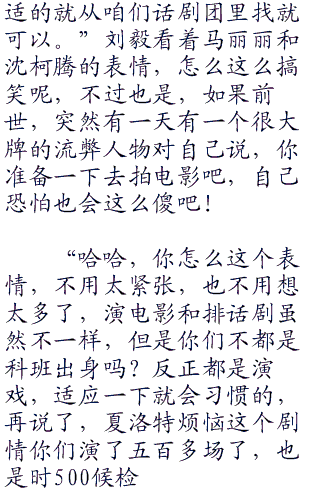 适的就从咱们话剧团里找就
可以。”刘毅看着马丽丽和
沈柯腾的表情，怎么这么搞
笑呢，不过也是，如果前
世，突然有一天有一个很大
牌的流弊人物对自己说，你
准备一下去拍电影吧，自己
恐怕也会这么傻吧！
“哈哈，你怎么这个表
情，不用太紧张，也不用想
太多了，演电影和排话剧虽
然不一样，但是你们不都是
科班出身吗？反正都是演
戏，适应一下就会习惯的，
再说了，夏洛特烦恼这个剧
情你们演了五百多场了，也
是时500候检